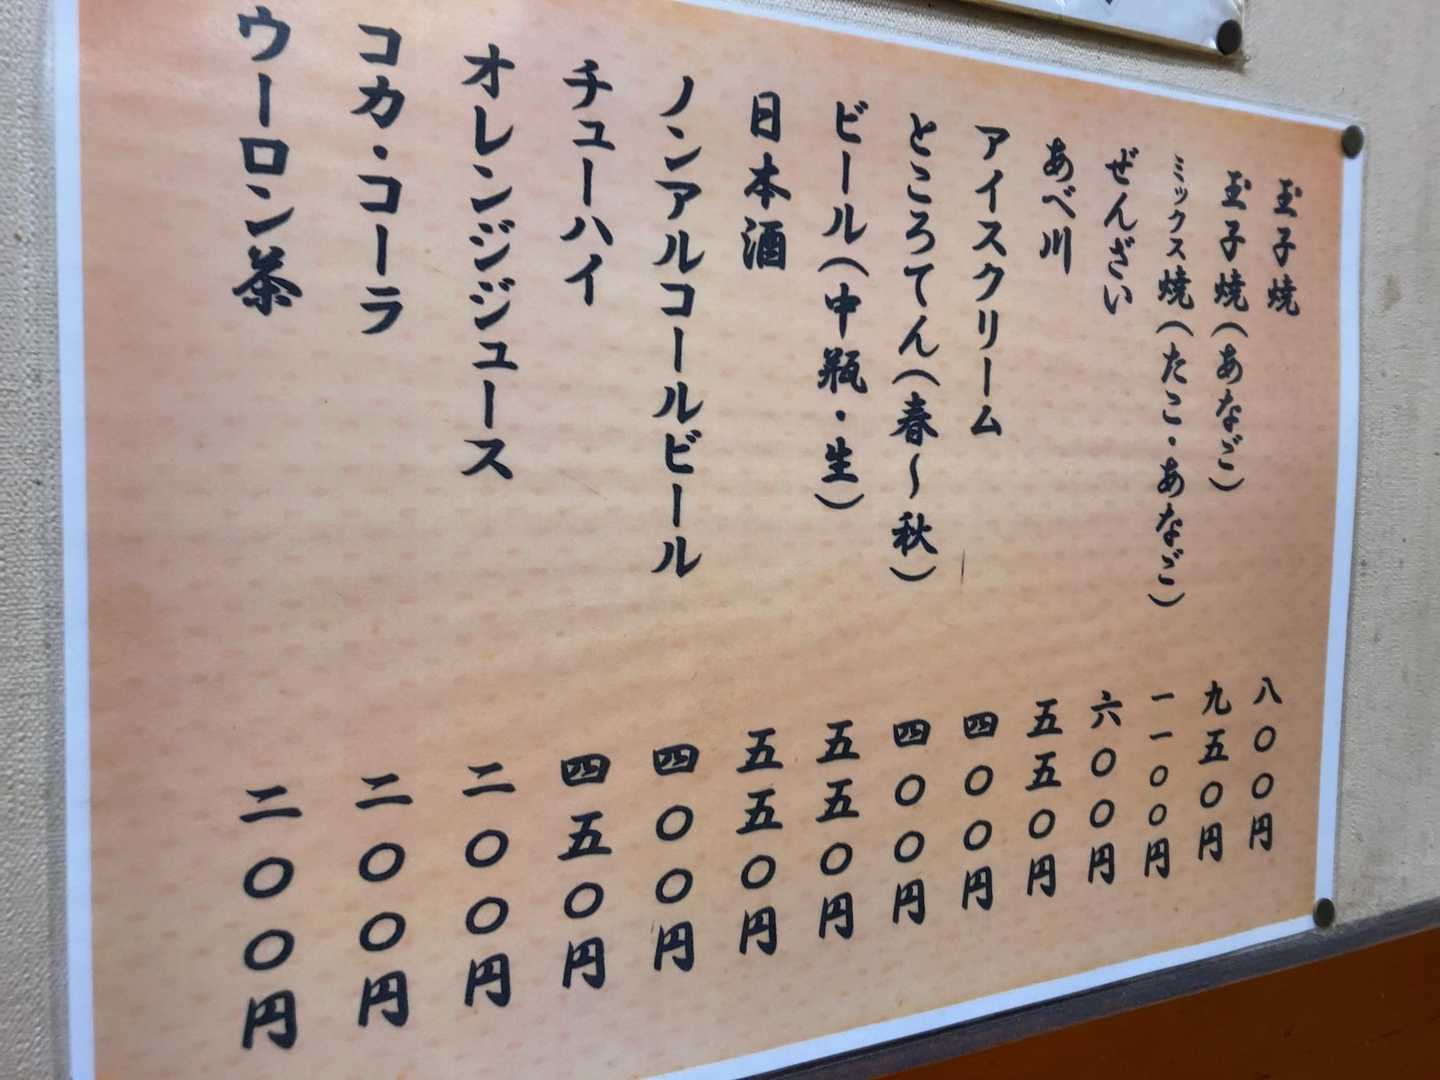 玉子焼 八〇〇円
玉子焼(あなご) 九五〇円
ミックス焼(たこ・あなご) 一一〇〇円
ぜんざい 六〇〇円
あべ川 五五〇円
アイスクリーム 四〇〇円
ところてん(春〜秋) 四〇〇円
ビール(中瓶・生) 五五〇円
日本酒 五五〇円
ノンアルコールビール 四〇〇円
チューハイ 四五〇円
オレンジジュース 二〇〇円
コカ・コーラ 二〇〇円
ウーロン茶 二〇〇円